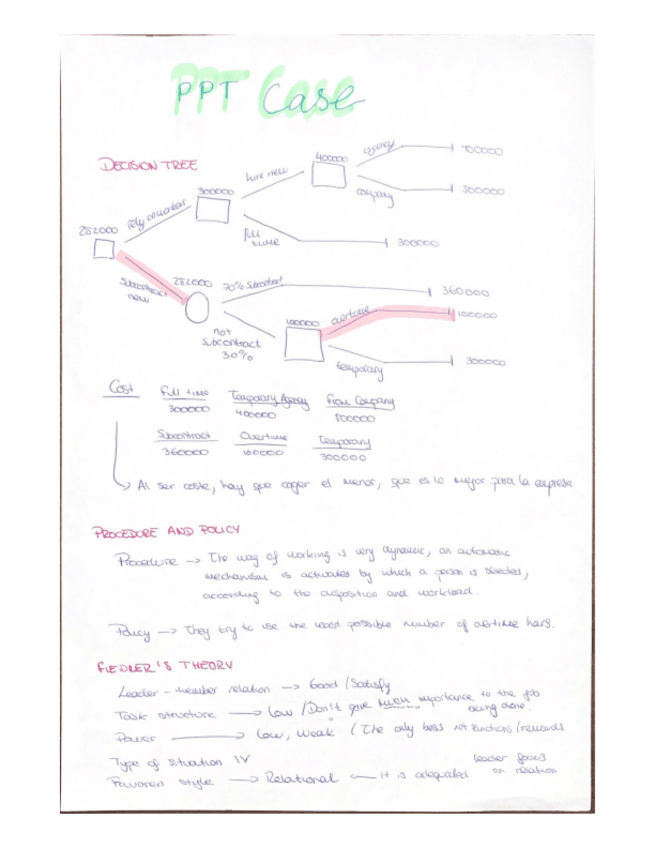 PPT Case
DECISION TREE
282000
rely on workers
300000
hire new
400000
agency
400000
company
500000
full time
300000
Subcontract new
282000
70% Subcontract
360000
not subcontract 30%
100000
overtime
100000
temporary
300000
Cost
Full time
300000
Temporary Agency
400000
From Company
500000
Subcontract
360000
Overtime
100000
Temporary
300000
Al ser coste, hay que coger el menor, que es lo mejor para la empresa
PROCEDURE AND POLICY
Procedure → The way of working is very dynamic, an automatic
mechanism is activated by which a person is selected,
according to the disposition and workload.
Policy → They try to use the least possible number of overtime hours.
FIEDLER'S THEORY
Leader - member relation → Good / Satisfy
Task structure → Low / Don't give much importance to the job
being done.
Power → Low, Weak (The only boss not functions/rewards
Type of situation IV
Favored style → Relational ← It is adequated
leader focus
on relation